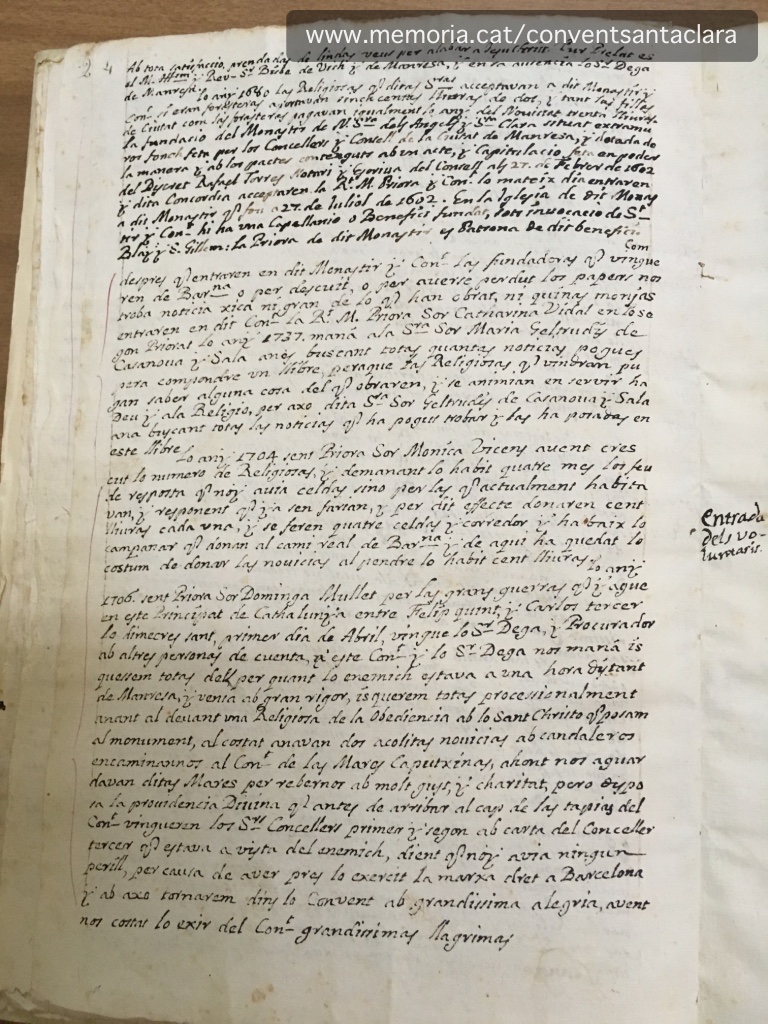 www.memoria.cat/conventsantaclara
24
Ab tota satisfaccio, prendadas de lindas veus per alabar a Jesuchrist. Cur Prelat es
el M. Illtm. y Revt. Sr. Bisbe de Vich y de Manresa, y en sa ausencia lo Sr. Dega
de Manresa. Lo any 1680 las Religiosas q̃ ditas Sras acceptavan a dit Monastir y
Cont. si eran forasteras aportavan sinch centas lliuras de dot, y tant las fillas
de Ciutat com las forasteras pagavan igualment lo any del Novitiat trenta lliuras.
la fundacio del Monastir de Na. Sra. dels Angels y Sta. Clara situat extramu
ros fonch feta per los Concellers y Consell de la Ciutat de Manresa, y dotada de
la manera y ab los pactes contenguts ab un acte, y Capitulacio feta en poder
del Discret Rafael Torres Notari y Escriva del Consell als 27. de Febrer de 1602
y dita Concordia acceptaren la Rt. M. Priora y Cont. lo mateix dia entraren
a dit Monastir q̃ fou a 27. de Juliol de 1602. En la Iglesia de dit Monas
tir y Cont. hi ha una Capellania o Benefici fundat, sots invocacio de St.
Blay y S. Gillem: la Priora de dit Monastir es Patrona de dit benefici
Com
despres q̃ entraren en dit Monastir y Cont. las fundadoras q̃ vingue
ren de Barna o per descuit, o per averse perdut los papers nos
troba noticia xica ni gran de lo q̃ han obrat, ni quinas monjas
entraren en dit Cont. la Rt. M. Priora Sor Catharina Vidal en lo se
gon Priorat lo any 1737. maná a la Sra. Sor Maria Geltrudis de
Casanova y Sala anes buscant totas quantas noticias pogues
pera compondre un llibre, peraque las Religiosas q̃ vindran pu
gan saber alguna cosa del q̃ obraren, y se animian en servir ha
Deu y a la Religio, per axo dita Sra. Sor Geltrudis de Casanova y Sala
ana buscant totas las noticias q̃ ha pogut trobar y las ha posadas en
este llibre.
Lo any 1704 sent Priora Sor Monica Vicens avent cres
cut lo numero de Religiosas, y demanant lo habit quatre mes los feu
de resposta q̃ noy avia celdas sino per las q̃ actualment habita
van, y responent q̃ ya sen farian, y per dit effecte donaren cent
lliuras cada una, y se feren quatre celdas y corredor, y ha baix lo
campanar q̃ donan al cami real de Barna y de aqui ha quedat lo
costum de donar las novicias al pendre lo habit cent lliuras.
Lo any
1706. sent Priora Sor Dominga Mullet per las grans guerras q̃ y ague
en este Principat de Cathalunya entre Felip quint, y Carlos tercer
lo dimecres sant, primer dia de Abril, vingue lo Sr. Dega, y Procurador
ab altres personas de cuenta, a este Cont. y lo Sr. Dega nos maná is
quesem totas dell per quant lo enemich estava a una hora distant
de Manresa, y venia ab gran rigor, isquerem totas processionalment
anant al devant una Religiosa de la Obediencia ab lo Sant Christo q̃ posam
al monument, al costat anavan dos acolitas novicias ab candaleros
encaminavnos al Cont. de las Mares Caputxinas, ahont nos aguar
davan ditas Mares per rebernos ab molt gust, y charitat, pero dispo
sa la providencia Divina q̃ antes de arribar al cap de las tapias del
Cont. vingueren los Srs. Concellers primer y segon ab carta del Conceller
tercer q̃ estava a vista del enemich, dient q̃ noy avia ningun
perill, per causa de aver pres lo exercit la marxa dret a Barcelona
y ab axo tornarem dins lo Convent ab grandissima alegria, avent
nos costat lo exir del Cont. grandissimas llagrimas
entrada
dels vo-
luntaris.